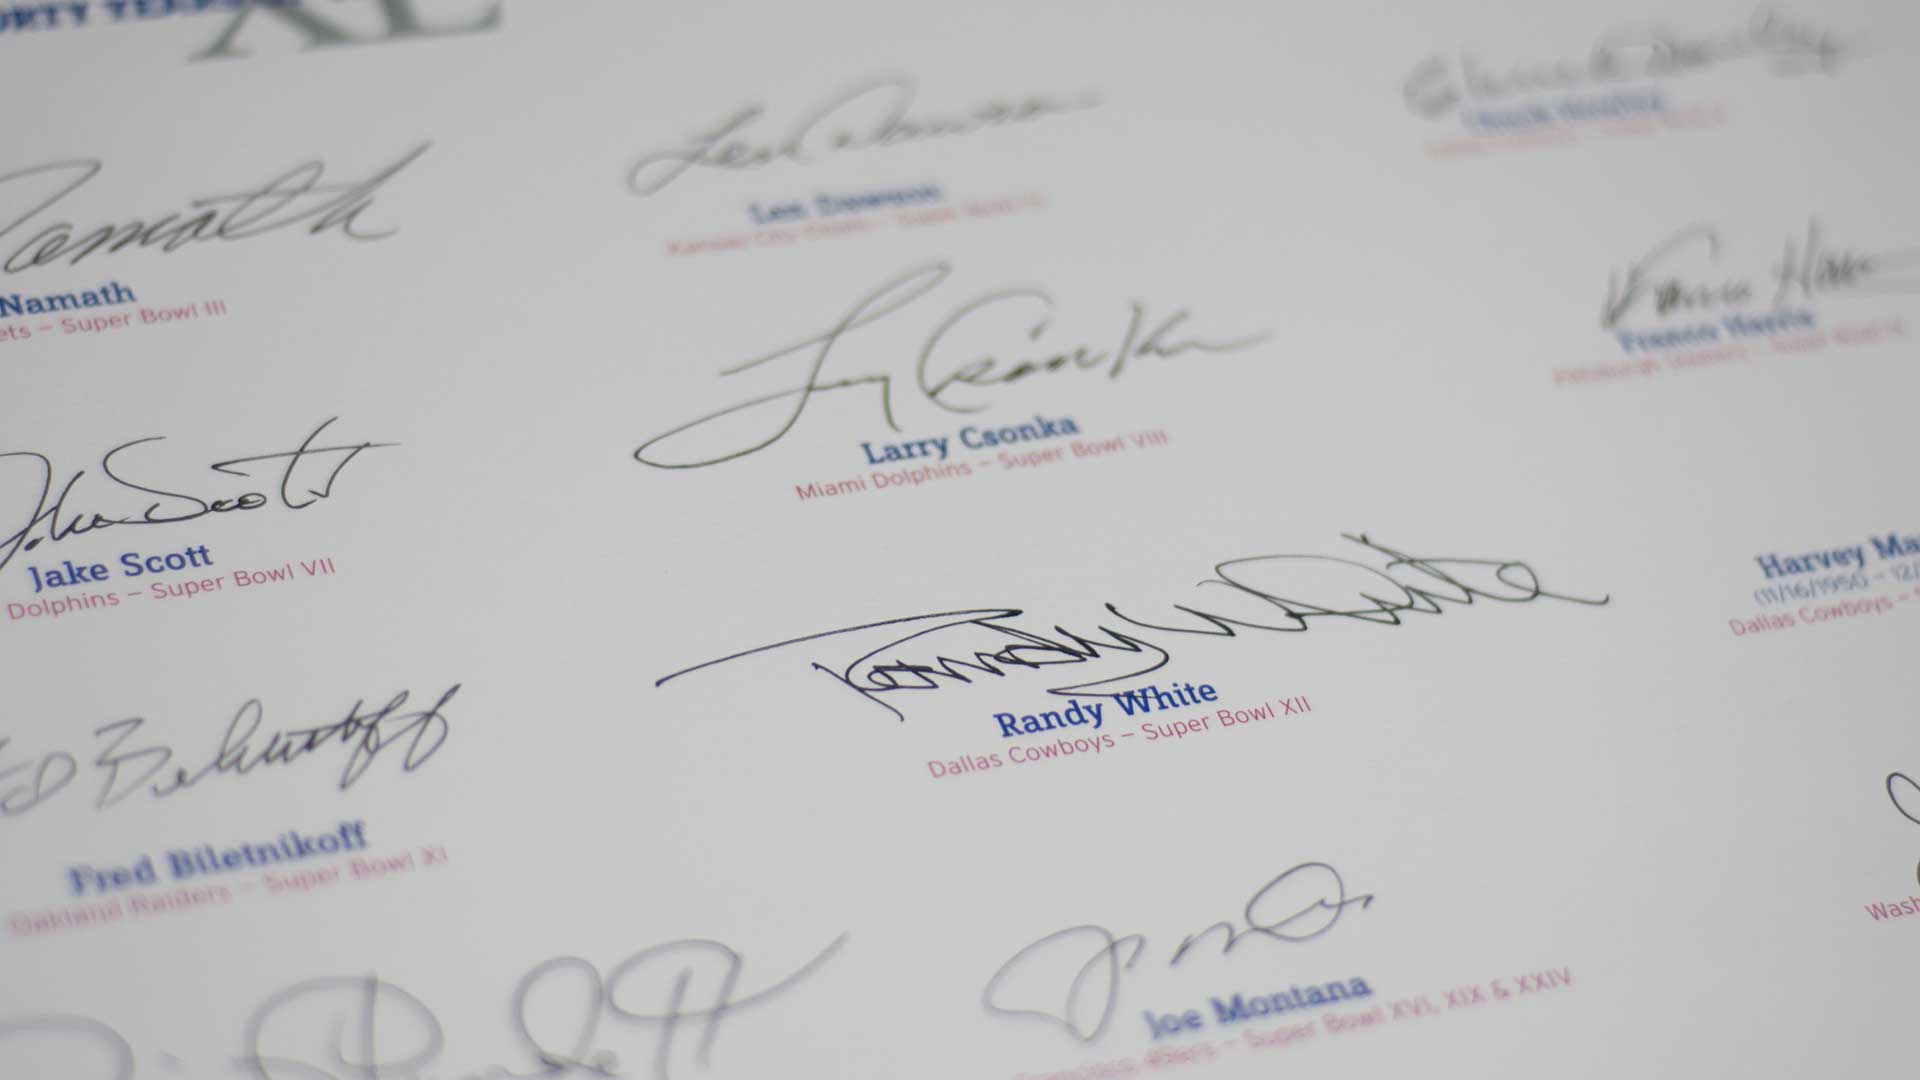 XL
Len Dawson
Kansas City Chiefs – Super Bowl
Namath
Namath
ets – Super Bowl III
Larry Csonka
Larry Csonka
Miami Dolphins – Super Bowl VIII
Franco Harris
Pittsburgh Steelers – Super Bowl
Jake Scott
Jake Scott
Dolphins – Super Bowl VII
Randy White
Randy White
Dallas Cowboys – Super Bowl XII
Harvey Ma
(11/16/1950 – 12/
Dallas Cowboys –
Biletnikoff
Fred Biletnikoff
Oakland Raiders – Super Bowl XI
Joe Montana
49ers – Super Bowl XVI, XIX & XXIV
Wash